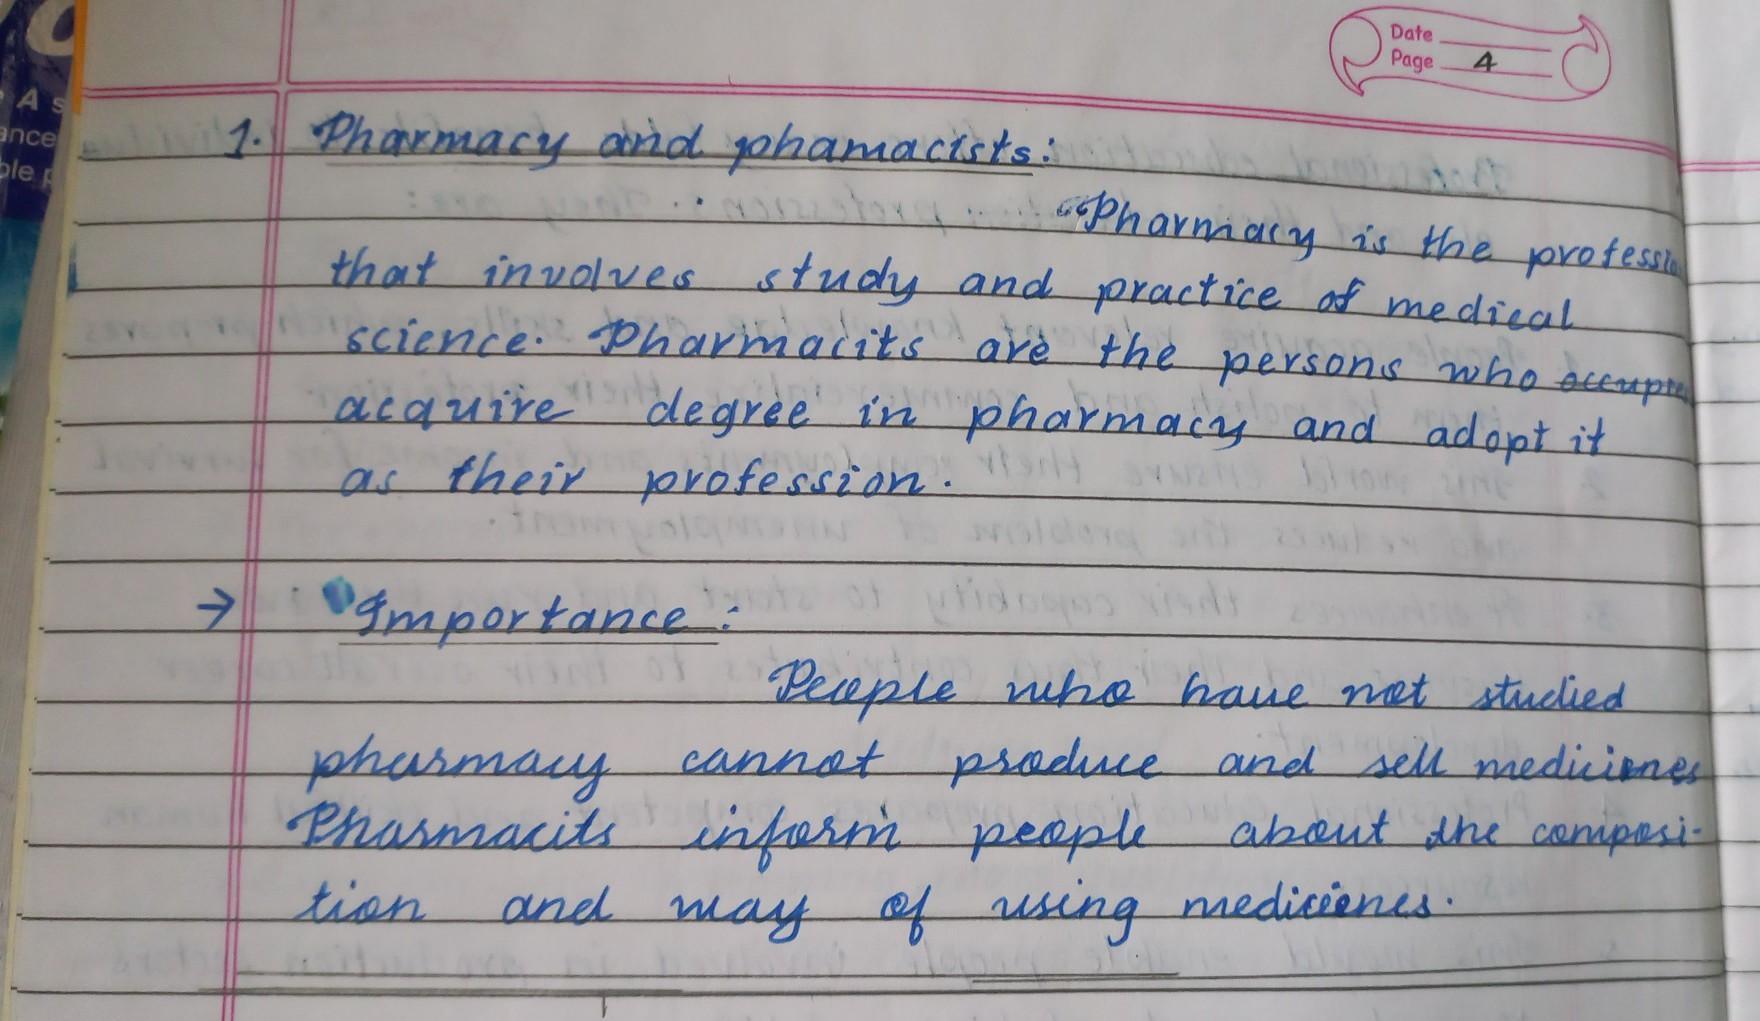 Date
Page 4
1. Pharmacy and phamacists:
"Pharmacy is the professio
that involves study and practice of medical
science. Pharmacits are the persons who
acquire degree in pharmacy and adopt it
as their profession.
→ Importance:
People who have not studied
pharmacy cannot produce and sell mediciones
Pharmacits inform people about the composi-
tion and way of using medicienes.
A s
ance
ple p